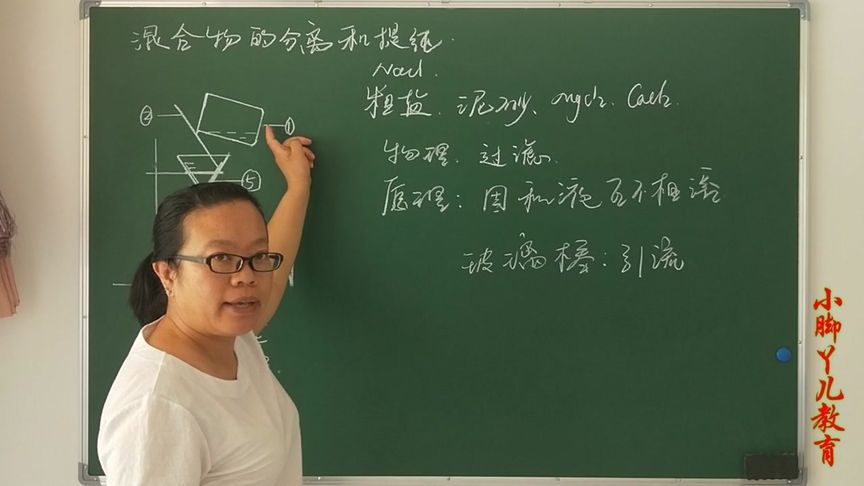 混合物的分离和提纯.
Nacl.
粗盐. 泥砂、mgcl2. Cacl2.
物理. 过滤.
原理: 固和液互不相溶
玻璃棒: 引流
②
①
⑤
小脚丫儿教育